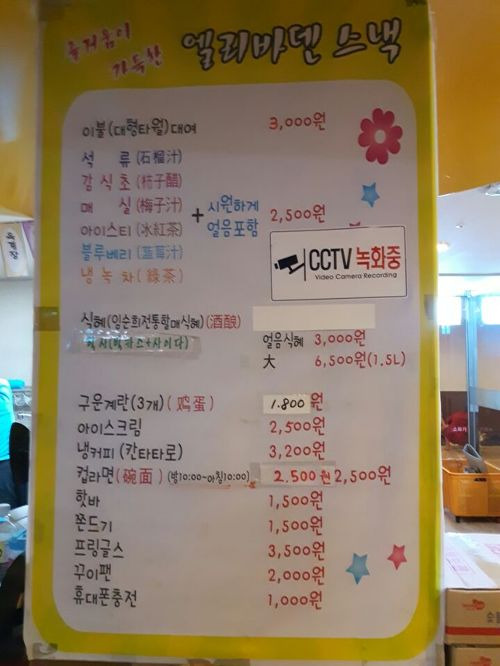 즐거움이
가득찬
엘리바덴 스낵
이불(대형타월)대여 3,000원
석 류(石榴汁)
감식초(柿子醋)
매 실(梅子汁)
아이스티(冰紅茶)
블루베리(蓝莓汁)
냉녹차(綠茶)
+ 시원하게
얼음포함 2,500원
CCTV 녹화중
Video Camera Recording
식혜(임순희전통할매식혜)(酒酿)
얼음식혜 3,000원
大 6,500원(1.5L)
구운계란(3개)(鸡蛋) 1.800원
아이스크림 2,500원
냉커피(칸타타로) 3,200원
컵라면(碗面)(밤10:00~아침10:00) 2.500원 2,500원
핫바 1,500원
쫀드기 1,500원
프링글스 3,500원
꾸이팬 2,000원
휴대폰충전 1,000원